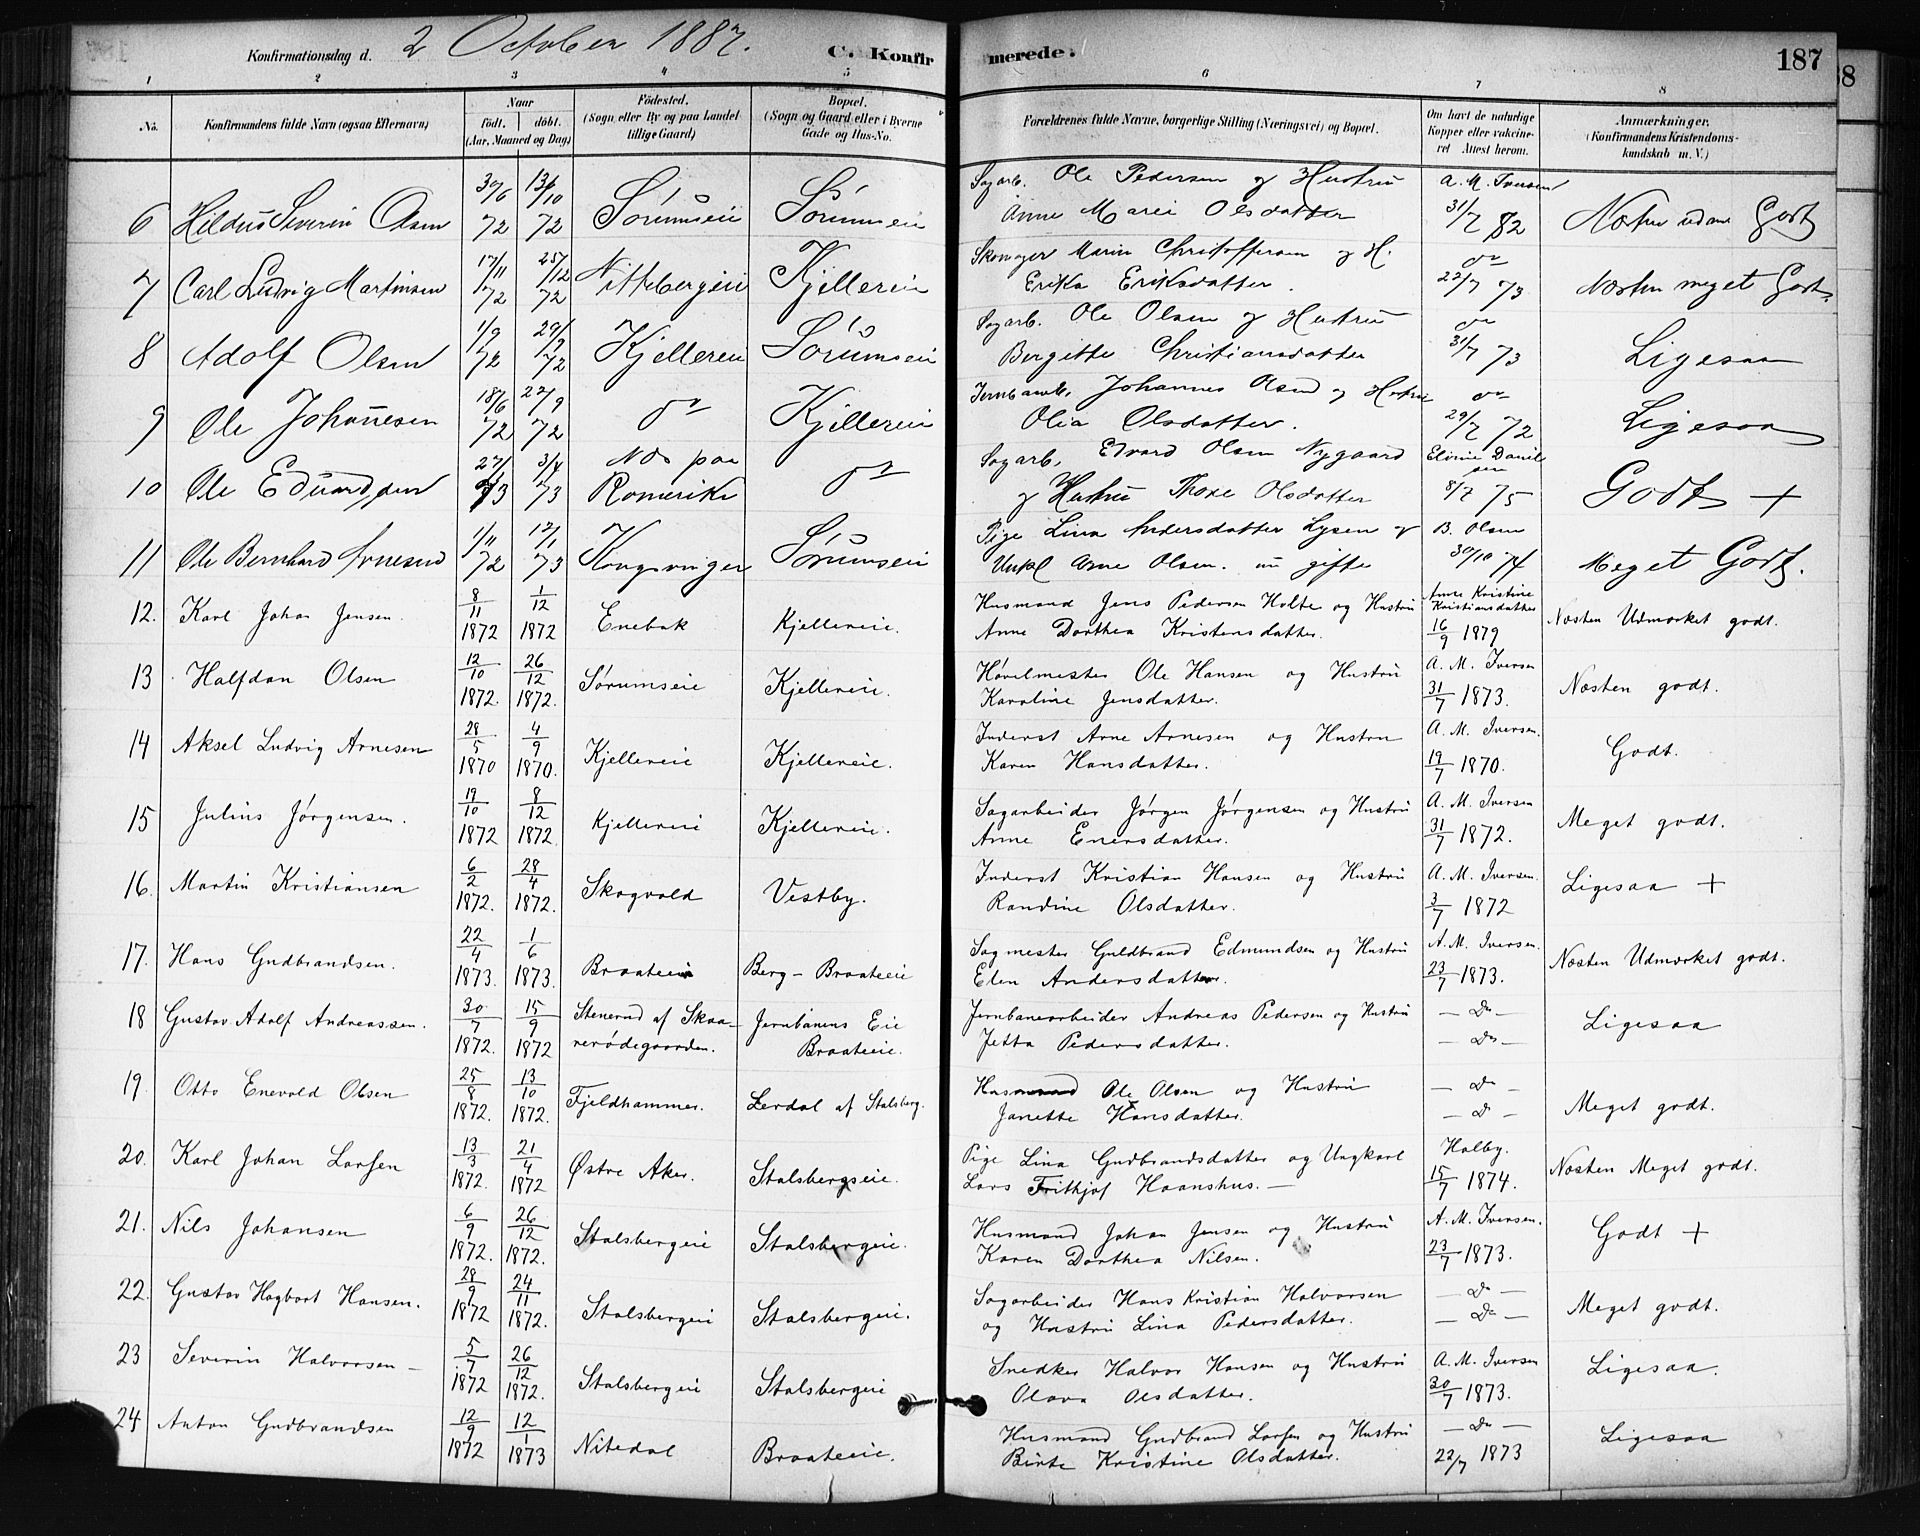 Konfirmationsdag d. 2 October 1887. C. Konfirmerede. 187
1 2 3 4 5 6 7 8
No. Konfirmandens fulde Navn (ogsaa Efternavn) Naar födt. döbt. (Aar, Maaned og Dag) Födested. (Sogn eller By og paa Landet tillige Gaard) Bopæl. (Sogn og Gaard eller i Byerne Gade og Hus-No. Forældrenes fulde Navne, borgerlige Stilling (Næringsvei) og Bopæl. Om havt de naturlige Kopper eller vakcineret Attest herom. Anmærkninger. (Konfirmandens Kristendomskundskab m. V.)
6 Severin Olsen 30/6 72 13/10 72 Sörumseie Sörumseie Sagarb. Ole Pedersen og Hustru A. M. Iversen
Anne Marie Olsdatter 31/7 82 Næsten Godt
7 Carl Ludvig Martinsen 17/11 72 25/12 72 Nittebergeie Kjellereie Christoffersen og H. do
Erika Eriksdatter. 22/7 73 Næsten meget Godt.
8 Adolf Olsen 1/9 72 72 Kjellereie Sörumseie Sagarb. Ole Olsen og Hustru do
Bergitte Christiansdatter 31/7 73 Ligesaa
9 Ole Johannesen 18/6 72 22/9 72 do Kjellereie Johannes Olsen og Hustru do
Olia Olsdatter. 29/7 72 Ligesaa
10 Ole Eduardsen 73 3/4 73 Næs paa Romerike do Sagarb. Edvard Olsen Nygaard
og Hustru Thore Olsdatter 8/7 75 Godt +
11 Ole Bernhard Arnesen 1/11 72 12/1 73 Kongsvinger Sörumseie Pige Lina Andersdatter og B. Olsen
Unkl Arne Olsen. nu gifte 30/10 74 Meget Godt.
12. Karl Johan Jensen. 8/11 1872 1/12 1872 Enebak Kjellereie. Husmand Jens Pedersen Holte og Hustru Anne Kristine Kristiansdatter
Anne Dorthea Kristensdatter. 16/9 1879 Næsten Udmærket godt.
13 Halfdan Olsen 12/10 1872. 26/12 1872. Sørumseie Kjellereie. Høvelmester Ole Hansen og Hustru A. M. Iversen
Karoline Jensdatter. 31/7 1873. Næsten godt.
14 Aksel Ludvig Arnesen 28/5 1870 4/9 1870. Kjellereie Kjellereie. Inderst Arne Arnesen og Hustru A. M. Iversen.
Karen Hansdatter. 19/7 1870. Godt.
15 Julius Jørgensen. 19/10 1872 8/12 1872. Kjellereie Kjellereie. Sagarbeider Jørgen Jørgensen og Hustru A. M. Iversen
Anne Enersdatter. 31/7 1872. Meget godt.
16. Martin Kristiansen 6/2 1872. 28/4 1872. Skogvold Vestby. Inderst Kristian Hansen og Hustru A. M. Iversen.
Randine Olsdatter. 3/7 1872 Ligesaa +
17. Hans Gudbrandsen. 22/4 1873. 1/6 1873. Braateie Berg-Braateeie Sagmester Guldbrand Edmundsen og Hustru A. M. Iversen.
Elen Andersdatter. 23/7 1873. Næsten Udmærket godt.
18 Gustav Adolf Andreassen. 30/7 1872. 15/9 1872 Stenerud af Skaarerødegaarden. Jernbanens Eie Braateeie. Jernbanearbeider Andreas Pedersen og Hustru — Do —
Jetta Pedersdatter. — Do — Ligesaa
19. Otto Enevold Olsen 25/8 1872. 13/10 1872. Fjeldhammer. Lerdal af Stalsberg. Husmand Ole Olsen og Hustru — Do —
Janette Hansdatter. — Do — Meget godt.
20. Karl Johan Larsen 13/3 1872. 21/4 1872 Østre Aker. Stalsbergseie. Pige Lina Gudbrandsdatter og Ungkarl Halby.
Lars Frithjof Haanshus. — 15/7 1874. Næsten Meget godt.
21. Nils Johansen 6/9 1872. 26/12 1872. Stalsbergeie Stalsbergeie. Husmand Johan Jensen og Hustru A. M. Iversen.
Karen Dorthea Nilsen. 23/7 1873. Godt +
22. Gustav Hagbart Hansen. 28/9 1872 24/11 1872. Stalsbergeie Stalsbergeie. Sagarbeider Hans Kristian Halvorsen — Do —
og Hustru Lina Pedersdatter. — Do — Meget godt.
23 Severin Halvorsen — 5/7 1872 26/12 1872. Stalsbergeie Stalsbergeie Snedker Halvor Hansen og Hustru A. M. Iversen
Olava Olsdatter. 30/7 1873. Ligesaa.
24 Anton Gudbrandsen 12/9 1872 12/1 1873 Nitedal Braateeie. Husmand Gudbrand Larsen og Hustru — Do —
Birte Kristine Olsdatter. 22/7 1873 Ligesaa